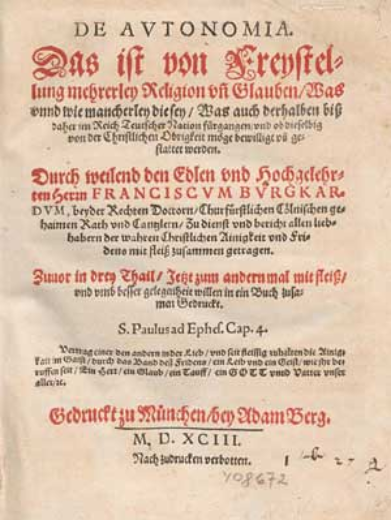 DE AVTONOMIA.
Das ist von Freystel-
lung mehrerley Religion vñ Glauben/Was
vnnd wie mancherley die sey/Was auch derhalben biß
daher im Reich Teutscher Nation fürgangen/vnd ob dieselbig
von der Christlichen Obrigkeit möge bewilligt vñ ge-
stattet werden.
Durch weilend den Edlen vnd Hochgelehr-
ten Herrn FRANCISCVM BVRGKAR-
DVM, beyder Rechten Doctorn/Churfürstlichen Cölnischen ge-
haimen Rath vnd Cantzlern/Zu dienst vnd bericht allen lieb-
habern der wahren Christlichen Ainigkeit vnd Fri-
dens mit fleiß zusammen getragen.
Zuuor in drey Thail/Jetzt zum andern mal mit fleiß/
vnd vmb besser gelegenheit willen in ein Buch zusa-
men Gedruckt.
S. Paulus ad Ephes. Cap. 4.
Vertrag einer den andern in der Lieb/vnd seit fleissig zuhalten die Ainig-
kait im Gaist/durch das Band deß Fridens/ein Leib vnd ein Geist/wie ihr be-
ruffen seit/Ein Herr/ein Glaub/ein Tauff/ein GOTT vnnd Vatter vnser
aller/ꝛc.
Gedruckt zu München/bey Adam Berg.
M, D. XCIII.
Nach zudrucken verbotten.
408672